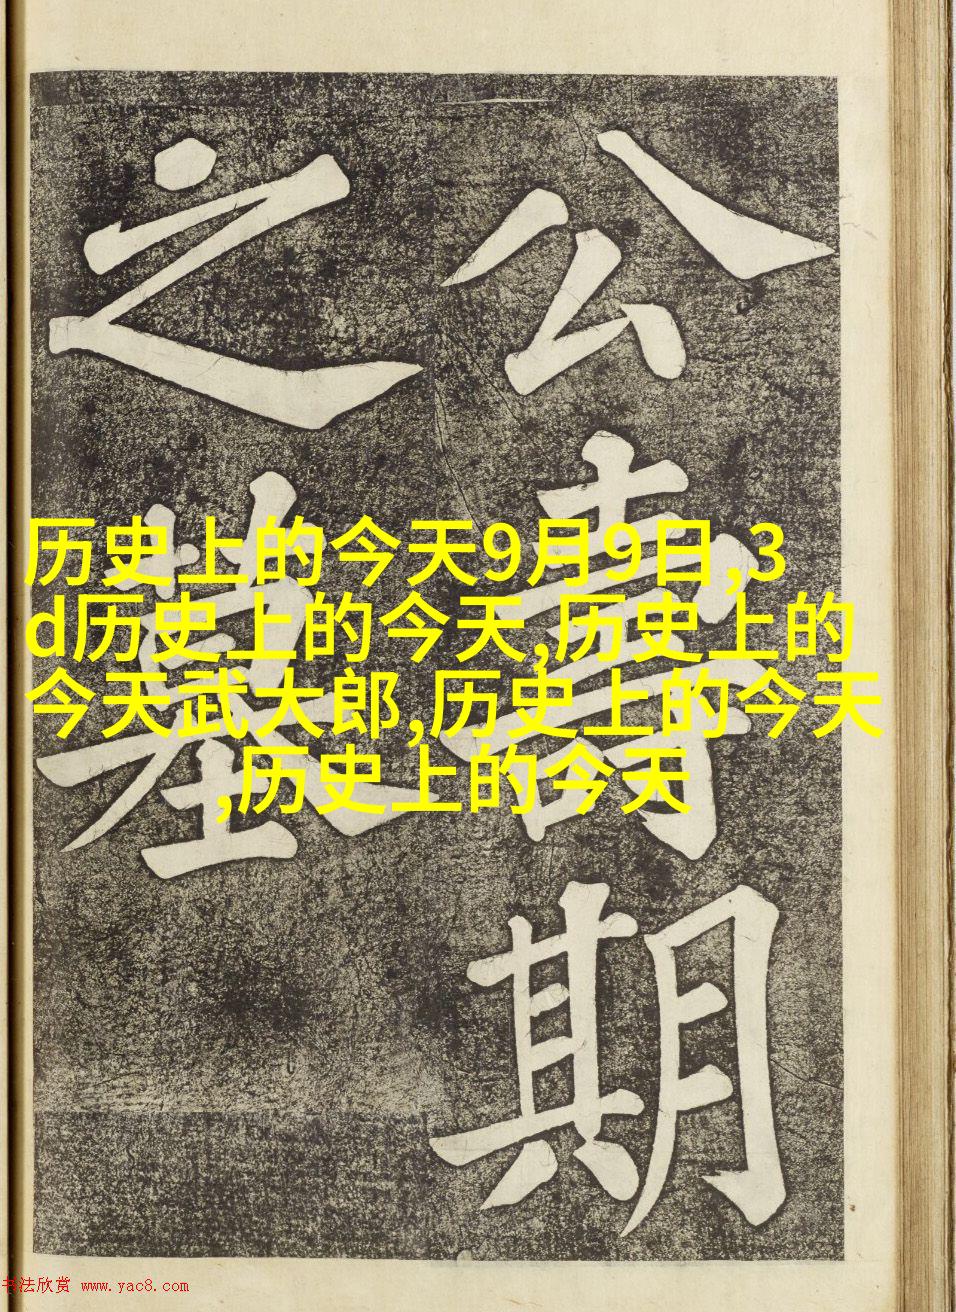 公壽期
之墓
历史上的今天9月9日,3
d历史上的今天,历史上的
今天武大郎,历史上的今天
,历史上的今天
书法欣赏 www.yac8.com